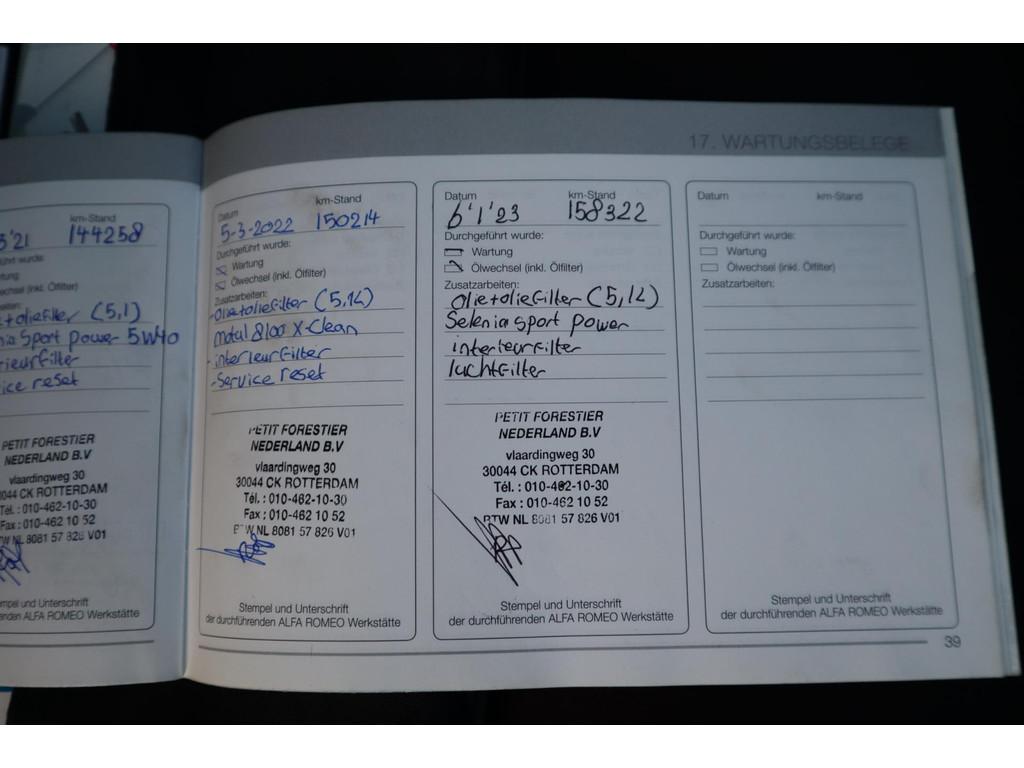 17. WARTUNGSBELEGE
km-Stand
'21 144258
(5,1)
Sport power 5W40
reset
PETIT FORESTIER
NEDERLAND B.V
vlaardingweg 30
CK ROTTERDAM
Tél. : 010-462-10-30
Fax : 010-462 10 52
NL 8081 57 826 V01
Stempel und Unterschrift
ALFA ROMEO Werkstätte
Datum km-Stand
5-3-2022 150214
Durchgeführt wurde:
Wartung
Ölwechsel (inkl. Ölfilter)
Zusatzarbeiten:
-olie+oliefilter (5,1L)
motul 8100 X-Clean
-interieurfilter
-Service reset
PETIT FORESTIER
NEDERLAND B.V
vlaardingweg 30
30044 CK ROTTERDAM
Tél. : 010-462-10-30
Fax : 010-462 10 52
BTW NL 8081 57 826 V01
Stempel und Unterschrift
der durchführenden ALFA ROMEO Werkstätte
Datum km-Stand
6'1'23 158322
Durchgeführt wurde:
Wartung
Ölwechsel (inkl. Ölfilter)
Zusatzarbeiten:
olie+oliefilter (5,1L)
Selenia sport power
interieurfilter
luchtfilter
PETIT FORESTIER
NEDERLAND B.V
vlaardingweg 30
30044 CK ROTTERDAM
Tél. : 010-462-10-30
Fax : 010-462 10 52
BTW NL 8081 57 826 V01
Stempel und Unterschrift
der durchführenden ALFA ROMEO Werkstätte
Datum km-Stand
Durchgeführt wurde:
Wartung
Ölwechsel (inkl. Ölfilter)
Zusatzarbeiten:
Stempel und Unterschrift
der durchführenden ALFA ROMEO Werkstätte
39